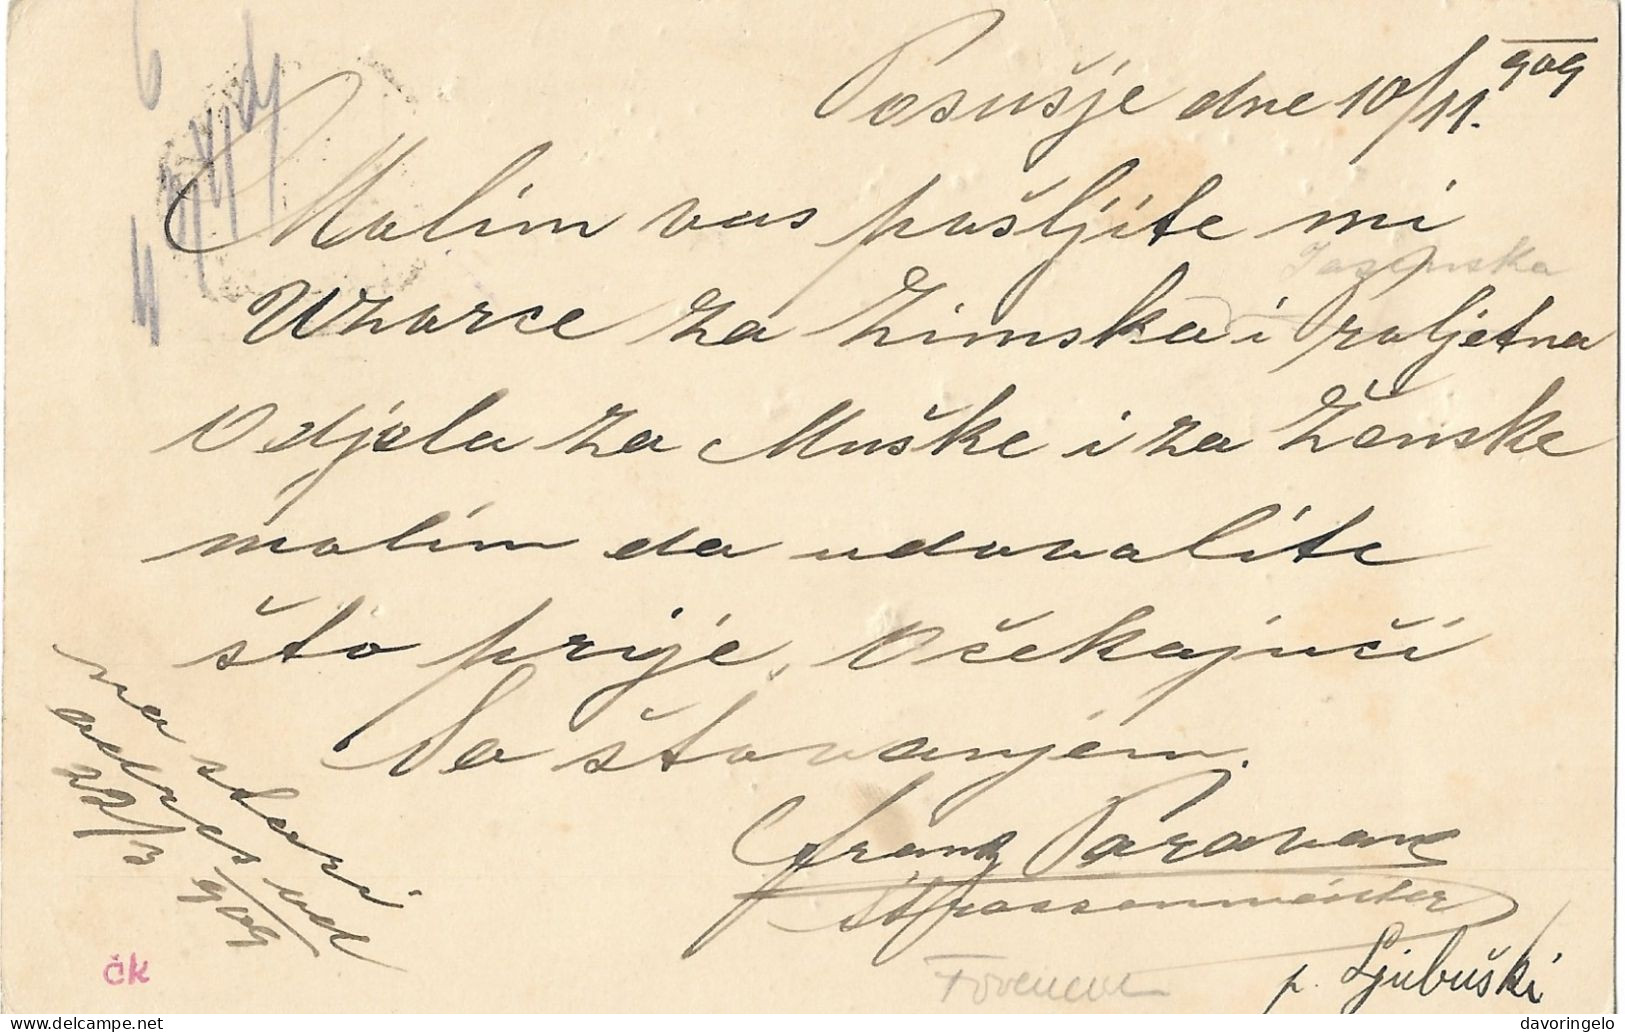 Posušje dne 10/11. 909
Molim vas pošljite mi
Uzorce za zimska i proljetna
Odjela za Muške i za Ženske
molim da udovolite
što prije. Očekajući
Sa štovanjem.
Franz Paravan
Strassenmeister
p. Ljubuški
na stari
adres od
22/3 909
čk
www.delcampe.net
davoringelo